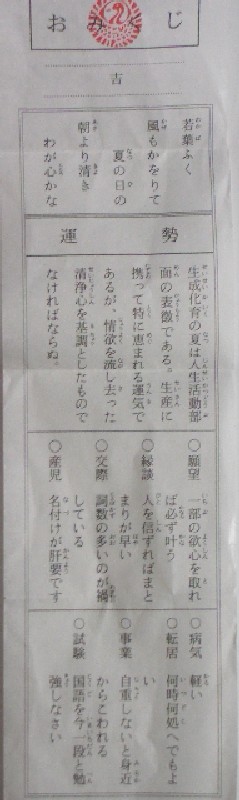 おみくじ
吉
若葉ふく
風もかをりて
夏の日の
朝より清き
わが心かな
運勢
生成化育の夏は人生活動部
面の表徴である。生産に
携って特に恵まれる運気で
あるが、情欲を流し去った
清浄心を基調としたもので
なければならぬ。
○願望 一部の欲心を取れ
ば必ず叶う
○縁談 人を信ずればまと
まりが早い
○交際 詞数の多いのが禍
している
○産児 名付けが肝要です
○病気 軽い
○転居 何時何処へでもよ
い
○事業 自重しないと身近
からこわれる
○試験 国語を今一段と勉
強しなさい